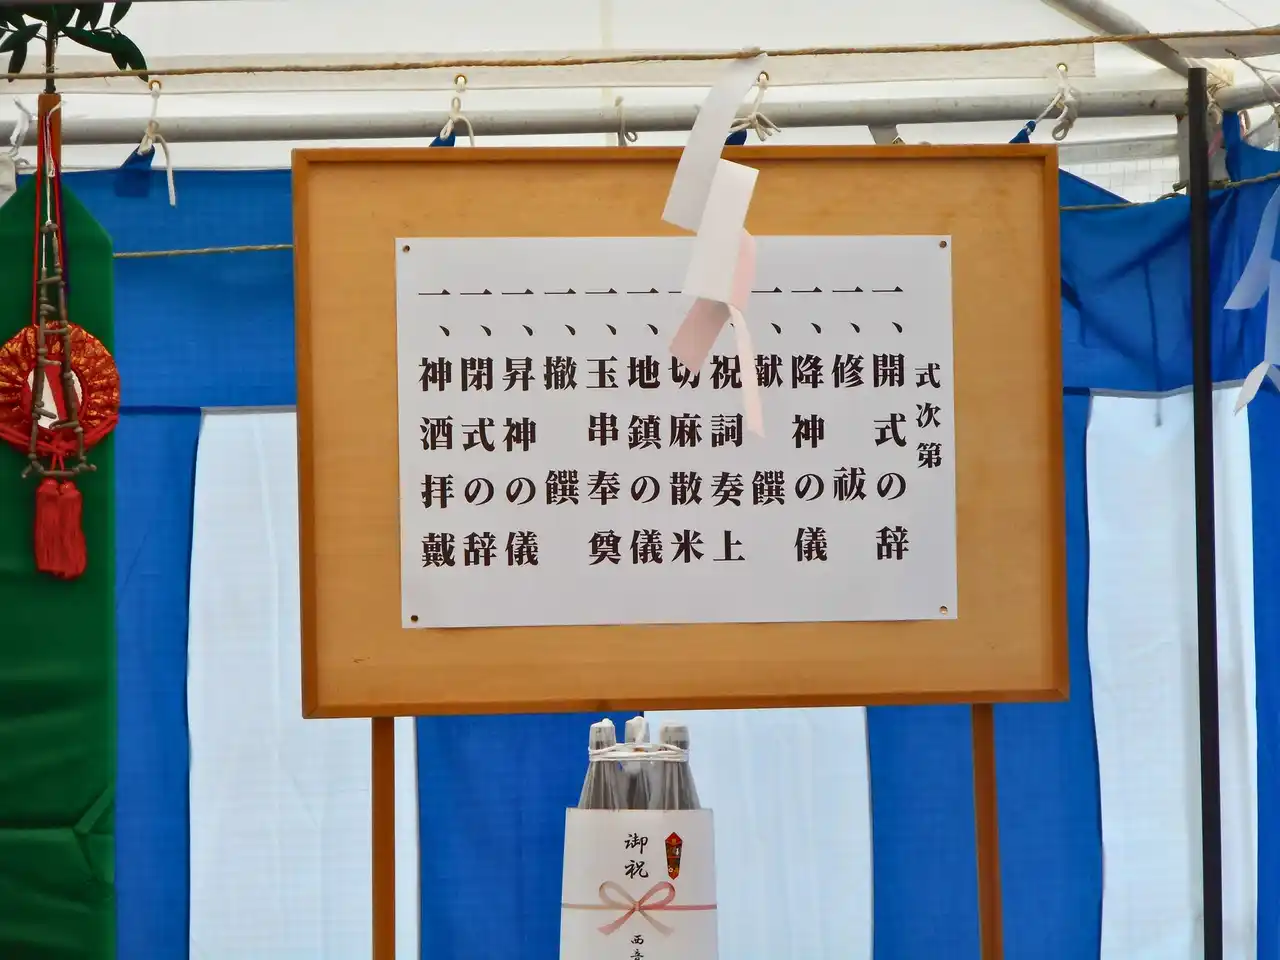 式次第
一、開式の辞
一、修祓
一、降神の儀
一、献饌
一、祝詞奏上
一、切麻散米
一、地鎮の儀
一、玉串奉奠
一、撤饌
一、昇神の儀
一、閉式の辞
一、神酒拝戴
御祝